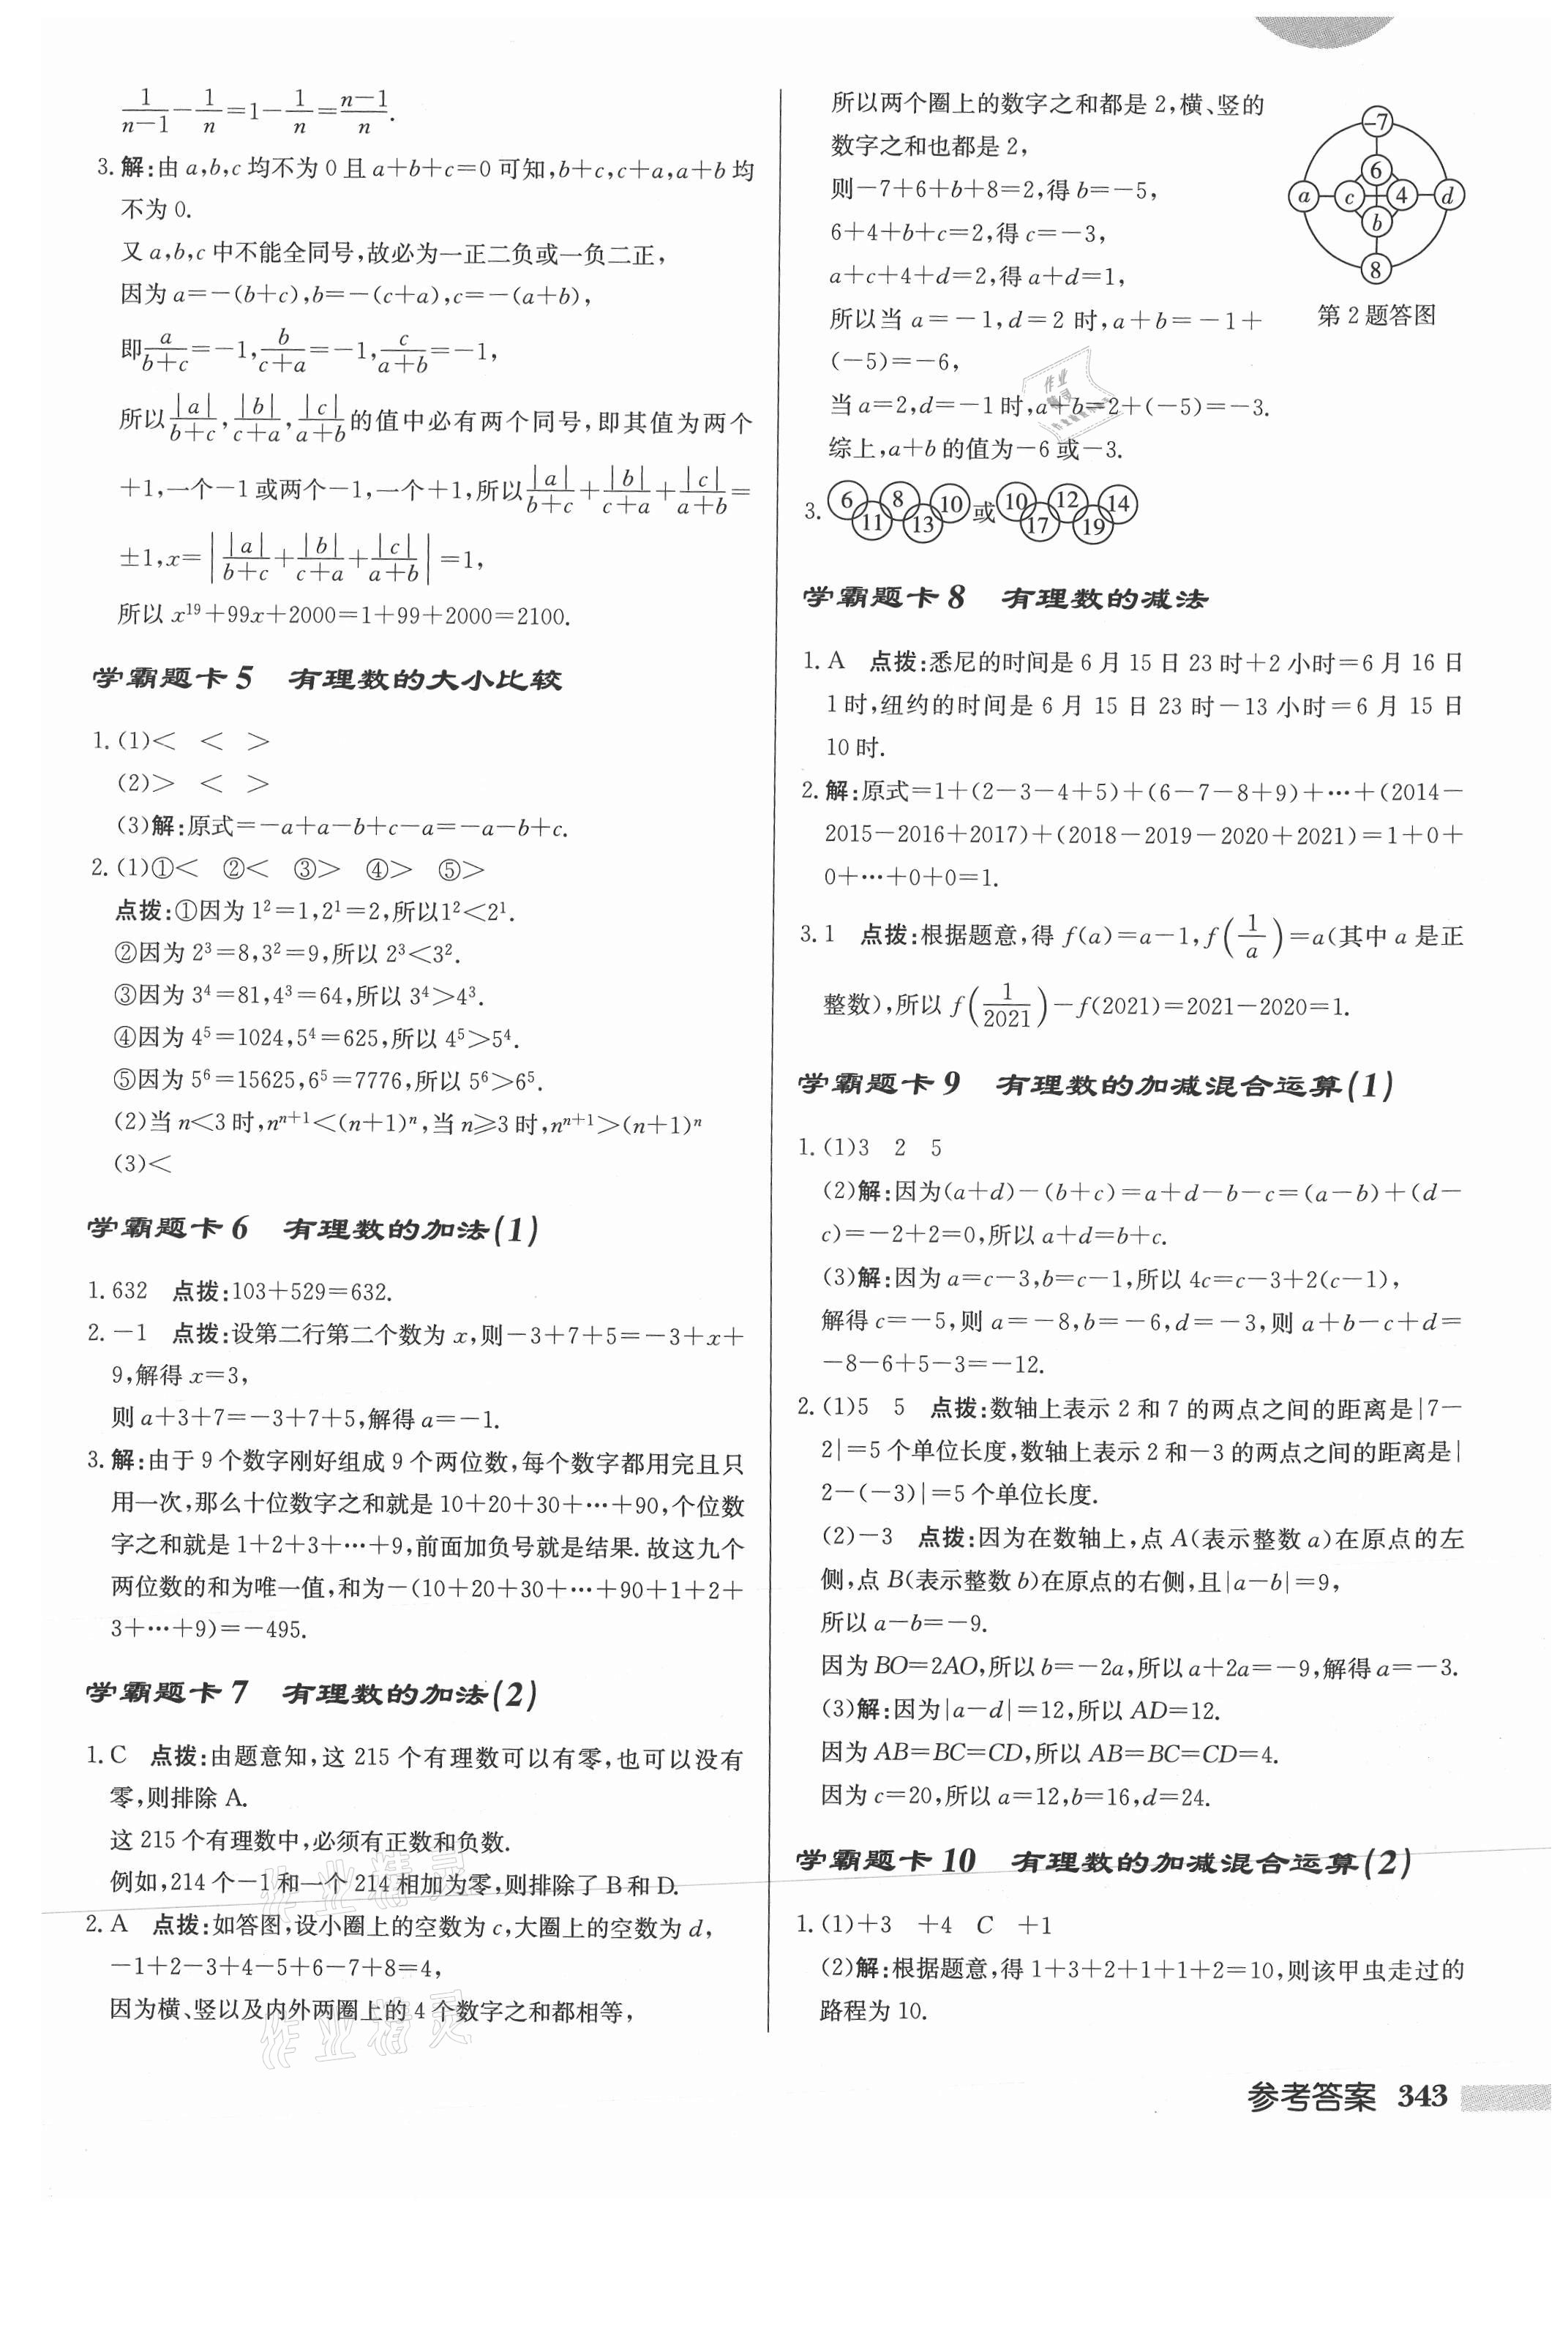 1/(n-1) - 1/n = 1 - 1/n = (n-1)/n.
3. 解:由 a,b,c 均不为 0 且 a+b+c=0 可知,b+c,c+a,a+b 均
不为 0.
又 a,b,c 中不能全同号,故必为一正二负或一负二正,
因为 a=-(b+c),b=-(c+a),c=-(a+b),
即 a/(b+c)=-1, b/(c+a)=-1, c/(a+b)=-1,
所以 |a|/(b+c), |b|/(c+a), |c|/(a+b) 的值中必有两个同号,即其值为两个
+1,一个-1 或两个-1,一个+1,所以 |a|/(b+c) + |b|/(c+a) + |c|/(a+b) =
±1,x=| |a|/(b+c) + |b|/(c+a) + |c|/(a+b) |=1,
所以 x¹⁹+99x+2000=1+99+2000=2100.
学霸题卡 5 有理数的大小比较
1. (1)< < >
(2)> < >
(3)解:原式=-a+a-b+c-a=-a-b+c.
2. (1)①< ②< ③> ④> ⑤>
点拨:①因为 1²=1,2¹=2,所以1²<2¹.
②因为 2³=8,3²=9,所以 2³<3².
③因为 3⁴=81,4³=64,所以 3⁴>4³.
④因为 4⁵=1024,5⁴=625,所以 4⁵>5⁴.
⑤因为 5⁶=15625,6⁵=7776,所以 5⁶>6⁵.
(2)当 n<3 时,nⁿ⁺¹<(n+1)ⁿ,当 n≥3 时,nⁿ⁺¹>(n+1)ⁿ
(3)<
学霸题卡 6 有理数的加法(1)
1. 632 点拨:103+529=632.
2. -1 点拨:设第二行第二个数为 x,则-3+7+5=-3+x+
9,解得 x=3,
则 a+3+7=-3+7+5,解得 a=-1.
3. 解:由于 9 个数字刚好组成 9 个两位数,每个数字都用完且只
用一次,那么十位数字之和就是 10+20+30+…+90,个位数
字之和就是 1+2+3+…+9,前面加负号就是结果. 故这九个
两位数的和为唯一值,和为-(10+20+30+…+90+1+2+
3+…+9)=-495.
学霸题卡 7 有理数的加法(2)
1. C 点拨:由题意知,这 215 个有理数可以有零,也可以没有
零,则排除 A.
这 215 个有理数中,必须有正数和负数.
例如,214 个-1 和一个 214 相加为零,则排除了 B 和 D.
2. A 点拨:如答图,设小圈上的空数为 c,大圈上的空数为 d,
-1+2-3+4-5+6-7+8=4,
因为横、竖以及内外两圈上的 4 个数字之和都相等,
作业精灵
作业精灵
所以两个圈上的数字之和都是 2,横、竖的
数字之和也都是 2,
则-7+6+b+8=2,得 b=-5,
6+4+b+c=2,得 c=-3,
a+c+4+d=2,得 a+d=1,
所以当 a=-1,d=2 时,a+b=-1+
(-5)=-6,
当 a=2,d=-1 时,a+b=2+(-5)=-3.
综上,a+b 的值为-6 或-3.
-7
6
a c 4 d
b
8
第 2 题答图
作业精灵
3. 6 11 8 13 10 或 10 17 12 19 14
学霸题卡 8 有理数的减法
1. A 点拨:悉尼的时间是 6 月 15 日 23 时+2 小时=6 月 16 日
1 时,纽约的时间是 6 月 15 日 23 时-13 小时=6 月 15 日
10 时.
2. 解:原式=1+(2-3-4+5)+(6-7-8+9)+…+(2014-
2015-2016+2017)+(2018-2019-2020+2021)=1+0+
0+…+0+0=1.
3. 1 点拨:根据题意,得 f(a)=a-1,f(1/a)=a(其中 a 是正
整数),所以 f(1/2021)-f(2021)=2021-2020=1.
学霸题卡 9 有理数的加减混合运算(1)
1. (1)3 2 5
(2)解:因为(a+d)-(b+c)=a+d-b-c=(a-b)+(d-
c)=-2+2=0,所以 a+d=b+c.
(3)解:因为 a=c-3,b=c-1,所以 4c=c-3+2(c-1),
解得 c=-5,则 a=-8,b=-6,d=-3,则 a+b-c+d=
-8-6+5-3=-12.
2. (1)5 5 点拨:数轴上表示 2 和 7 的两点之间的距离是|7-
2|=5 个单位长度,数轴上表示 2 和-3 的两点之间的距离是|
2-(-3)|=5 个单位长度.
(2)-3 点拨:因为在数轴上,点 A(表示整数 a)在原点的左
侧,点 B(表示整数 b)在原点的右侧,且|a-b|=9,
所以 a-b=-9.
因为 BO=2AO,所以 b=-2a,所以 a+2a=-9,解得 a=-3.
(3)解:因为|a-d|=12,所以 AD=12.
因为 AB=BC=CD,所以 AB=BC=CD=4.
因为 c=20,所以 a=12,b=16,d=24.
学霸题卡 10 有理数的加减混合运算(2)
1. (1)+3 +4 C +1
(2)解:根据题意,得 1+3+2+1+1+2=10,则该甲虫走过的
路程为 10.
参考答案 343